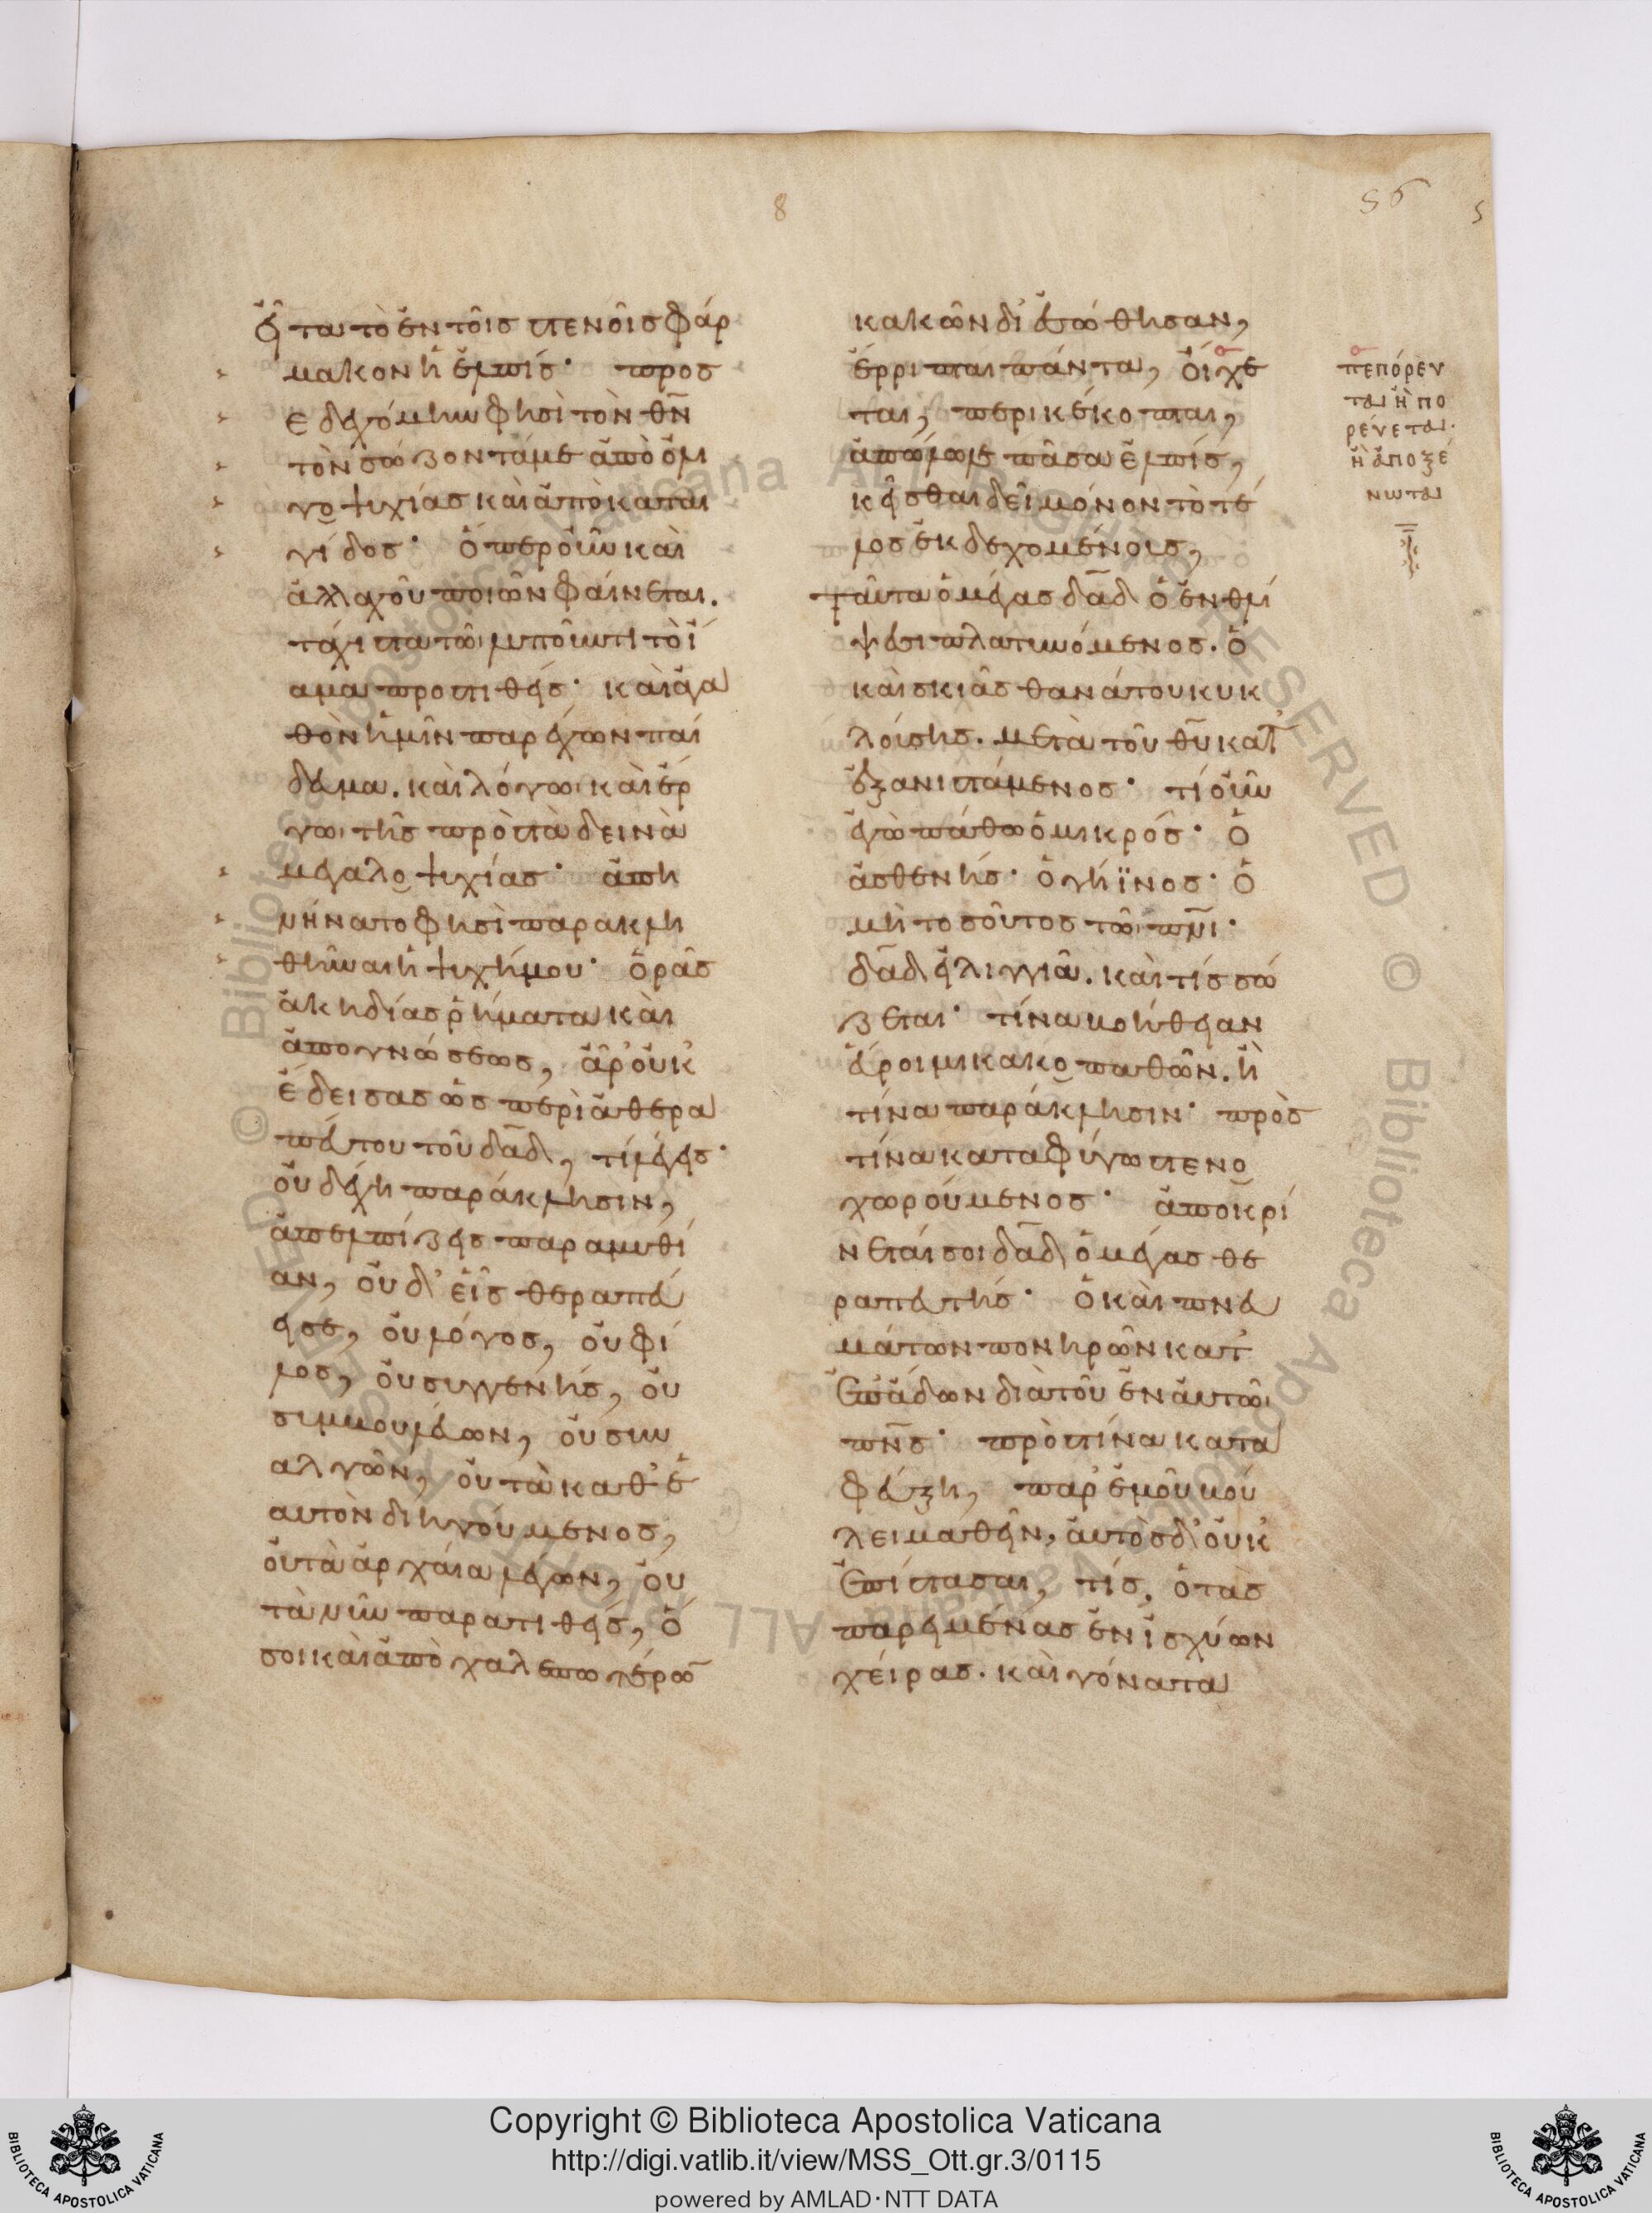 εἶτα τὸ ἐν τοῖς στενοῖς φάρ
μακον ἡ ἐλπίς· προσ
εδεχόμην φησὶ τὸν θν̄
τὸν σώζοντά με ἀπὸ ὀλι
γοψυχίας καὶ ἀπὸ καται
γίδος· ὅπερ οὖν καὶ
ἀλλαχοῦ ποιῶν φαίνεται.
τάχιστα τῶι λυποῦντι τὸ ἴ
αμα προστιθείς· καὶ ἀγα
θὸν ἡμῖν παρέχων παί
δευμα. καὶ λόγωι καὶ ἔρ
γωι τῆς πρὸς τὰ δεινὰ
μεγαλοψυχίας· ἀπη
νήνατο φησὶ παρακλη
θῆναι ἡ ψυχή μου· ὁρᾶς
ἀκηδίας ῥήματα καὶ
ἀπογνώσεως, ἆρ' οὐκ
ἔδεισας ὡς περὶ ἀθερα
πεύτου τοῦ δᾱδ, τί λέγεις·
οὐ δέχη παράκλησιν,
ἀπελπίζεις παραμυθί
αν, οὐδ' εἷς θεραπεύ
ει σε, οὐ λόγος, οὐ φί
λος, οὐ συγγενὴς, οὐ
συμβουλεύων, οὐ συν
αλγῶν, οὐ τὰ καθ' ἑ
αυτὸν διηγούμενος,
οὐ τὰ ἀρχαῖα λέγων, οὐ
τὰ νῦν παρατιθεὶς, ὅ
σοι καὶ ἀπὸ χαλεπωτέρω̄
κακῶν διεσώθησαν,
ἔρριπται πάντα, οἴχε
ται, περικέκοπται,
ἀπόλωλε πᾶσα ἐλπίς,
κεῖσθαι δεῖ μόνον τὸ τέ
λος ἐκδεχομένοις,
Ταῦτα ὁ μέγας δᾱδ ὁ ἐν θλί
ψεσι πλατυνόμενος. ὁ
καὶ σκιᾶς θανάτου κυκ
λούσης. μετὰ τοῦ θῡ κατ
εξανιστάμενος· τί οὖν
ἐγὼ πάθω ὁ μικρός· ὁ
ἀσθενής· ὁ γήϊνος· ὁ
μὴ τοσοῦτος τῶι πν̄ι·
δᾱδ εἰλιγγιᾶ. καὶ τίς σώ
ζεται· τίνα βοήθειαν
εὕροιμι κακοπαθῶν. ἢ
τίνα παράκλησιν· πρὸς
τίνα καταφύγω στενο
χωρούμενος· ἀποκρί
νεταί σοι δᾱδ ὁ μέγας θε
ραπευτής· ὁ καὶ πνευ
μάτων πονηρῶν κατ
επάδων διὰ τοῦ ἐν αὐτῶι
πν̄ς· πρὸς τίνα κατα
φεύξη, παρ' ἐμοῦ βού
λει μαθεῖν, αὐτὸς δ' οὐκ
ἐπίστασαι, τίς, ὁ τὰς
παρειμένας ἐνισχύων
χεῖρας. καὶ γόνατα
πεπόρευ
ται ἢ πο
ρεύεται.
ἢ ἀποξέ
νωται
8
56
5
Copyright © Biblioteca Apostolica Vaticana
http://digi.vatlib.it/view/MSS_Ott.gr.3/0115
powered by AMLAD·NTT DATA
BIBLIOTECA APOSTOLICA VATICANA
BIBLIOTECA APOSTOLICA VATICANA